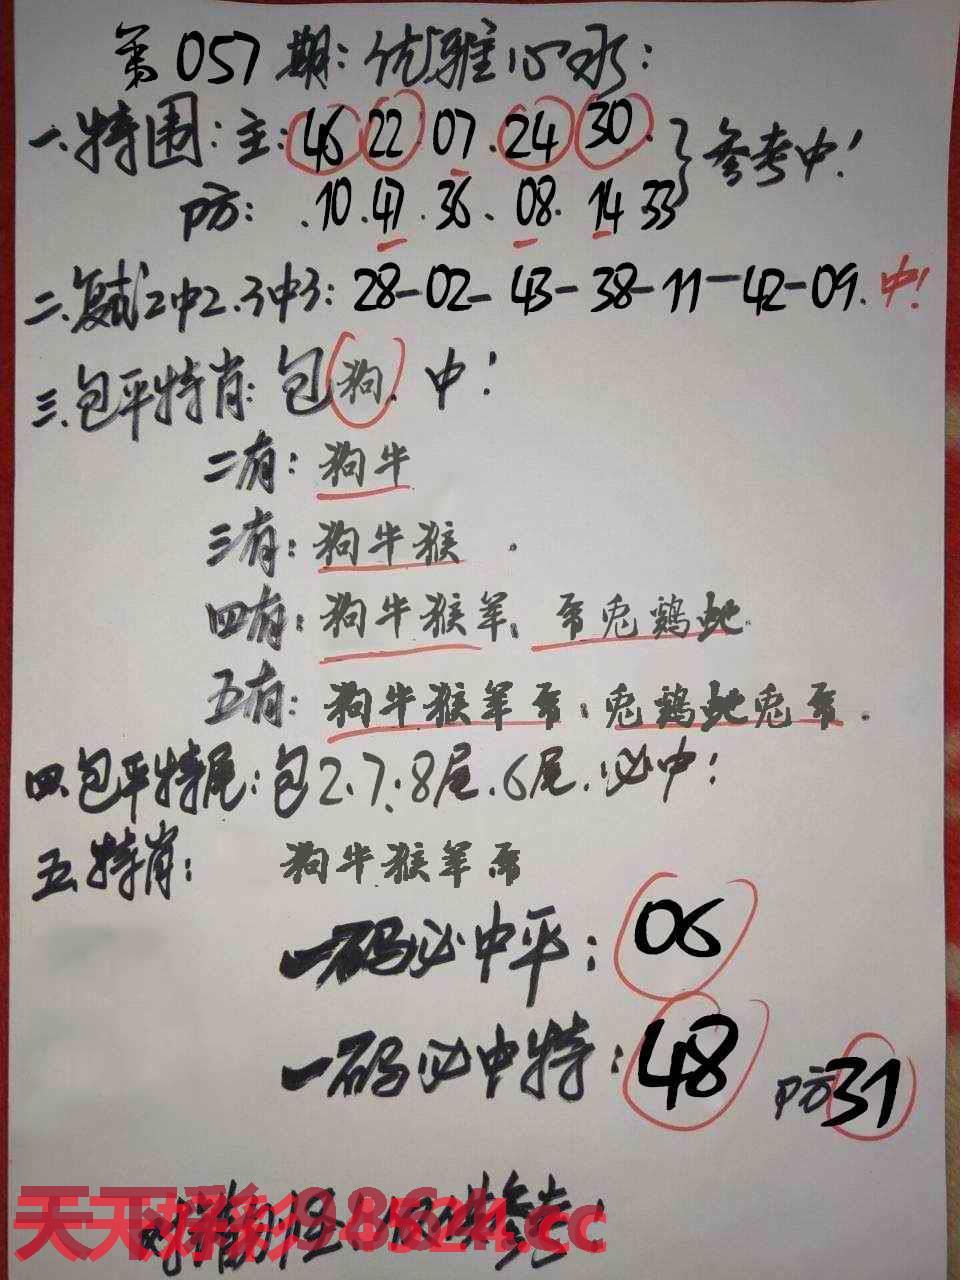 第057期：优雅心水：
一、特围：主：46 22 07 24 30 } 参考中！
防：10.47.36.08.14 33
二、复试2中2.3中3：28-02-43-38-11-42-09.中！
三、包平特肖：包狗.中！
二有：狗牛
三有：狗牛猴
四有：狗牛猴羊、兔鸡蛇
五有：狗牛猴羊：兔鸡蛇兔
四、包平特尾：包2.7.8尾.6尾.必中！
五、特肖：狗牛猴羊
一码必中平：06
一码必中特：48 防31
天下彩98524.cc